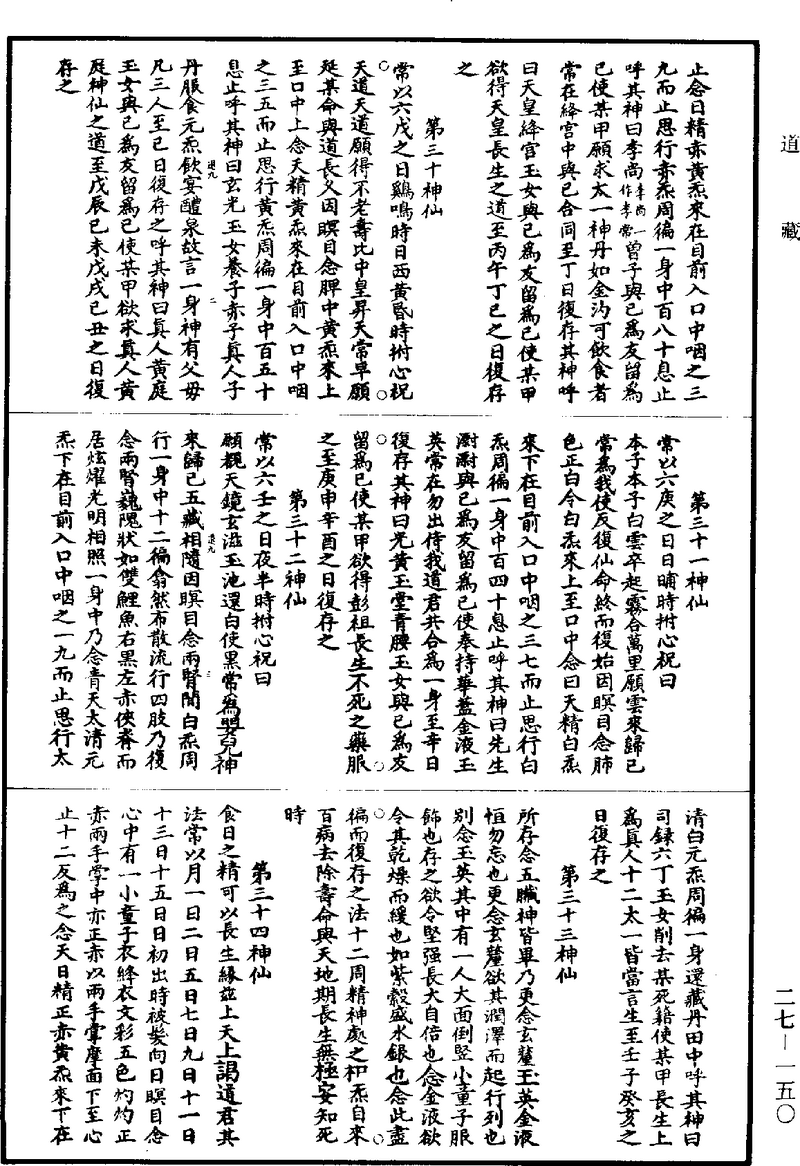 道藏
止念日精赤黃炁來在目前入口中咽之三
九而止思行赤炁周徧一身中百八十息止
呼其神曰李尚李尚一作李常曾子與己為友留為
己使某甲願求太一神丹如金沟可飲食者
常在絳宮中與己合同至丁日復存其神呼
曰天皇絳宮玉女與己為友留為己使某甲
欲得天皇長生之道至丙午丁巳之日復存
之
第三十神仙
常以六戊之日鷄鳴時日西黃昏時拊心祝
天道天道願得不老壽比中皇昇天常早願
延某命與道長久因瞑目念脾中黃炁來上
至口中上念天精黃炁來在目前入口中咽
之三五而止思行黃炁周徧一身中百五十
息止呼其神曰玄光玉女養子赤子真人子
丹服食元炁飲宴醴泉故言一身神有父母
凡三人至己日復存之呼其神曰真人黃庭
玉女與己為友留為己使某甲欲求真人黃
庭神仙之道至戊辰己未戊戌己丑之日復
存之
第三十一神仙
常以六庚之日日晡時拊心祝曰
本子本子白雲卒起霧合萬里願雲來歸己
常為我使反復仙命終而復始因瞑目念肺
色正白令白炁來上至口中念曰天精白炁
來下在目前入口中咽之三七而止思行白
炁周徧一身中百四十息止呼其神曰先生
澍澍與己為友留為己使奉持華蓋金液玉
英常在勿出侍我道君共合為一身至辛日
復存其神曰光黃玉堂青腰玉女與己為友
留為己使某甲欲得彭祖長生不死之藥服
之至庚申辛酉之日復存之
第三十二神仙
常以六壬之日夜半時拊心祝曰
願觀天鏡玄滋玉池還白使黑常為嬰兒神
來歸己五藏相隨因瞑目念兩腎間白炁周
行一身中十二徧翕然布散流行四肢乃復
念兩腎巍隗狀如雙鯉魚右黑左赤俠脊而
居炫燿光明相照一身中乃念青天太清元
炁下在目前入口中咽之一九而止思行太
清白元炁周徧一身還藏丹田中呼其神曰
司錄六丁玉女削去某死籍使某甲長生上
為真人十二太一皆當言生至壬子癸亥之
日復存之
第三十三神仙
所存念五臟神皆畢乃更念玄釐玉英金液
恒勿忘也更念玄釐欲其潤澤而起行列也
別念玉英其中有一人大面倒豎小童子服
飾也存之欲令堅强長大自倍也念金液欲
令其乾燥而緩也如紫縠盛水銀也念此盡
徧而復存之法十二周精神處之和炁自來
百病去除壽命與天地期長生無極安知死
時
第三十四神仙
食日之精可以長生緣茲上天上謁道君其
法常以月一日二日五日七日九日十一日
十三日十五日日初出時被髮向日瞑目念
心中有一小童子衣絳衣文彩五色灼灼正
赤兩手掌中亦正赤以兩手掌摩面下至心
止十二反為之念天日精正赤黃炁來下在
二七—一五〇